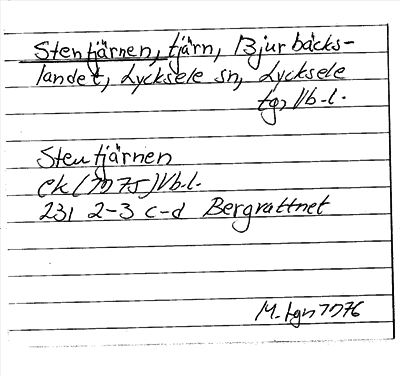 Stentjärnen, tjärn, Bjurbäcks-
landet, Lycksele sn, Lycksele
tg, Vb.l.
Stentjärnen
ek (1975) Vb.l.
23, 2-3 c-d Bergvattnet
M. 1976